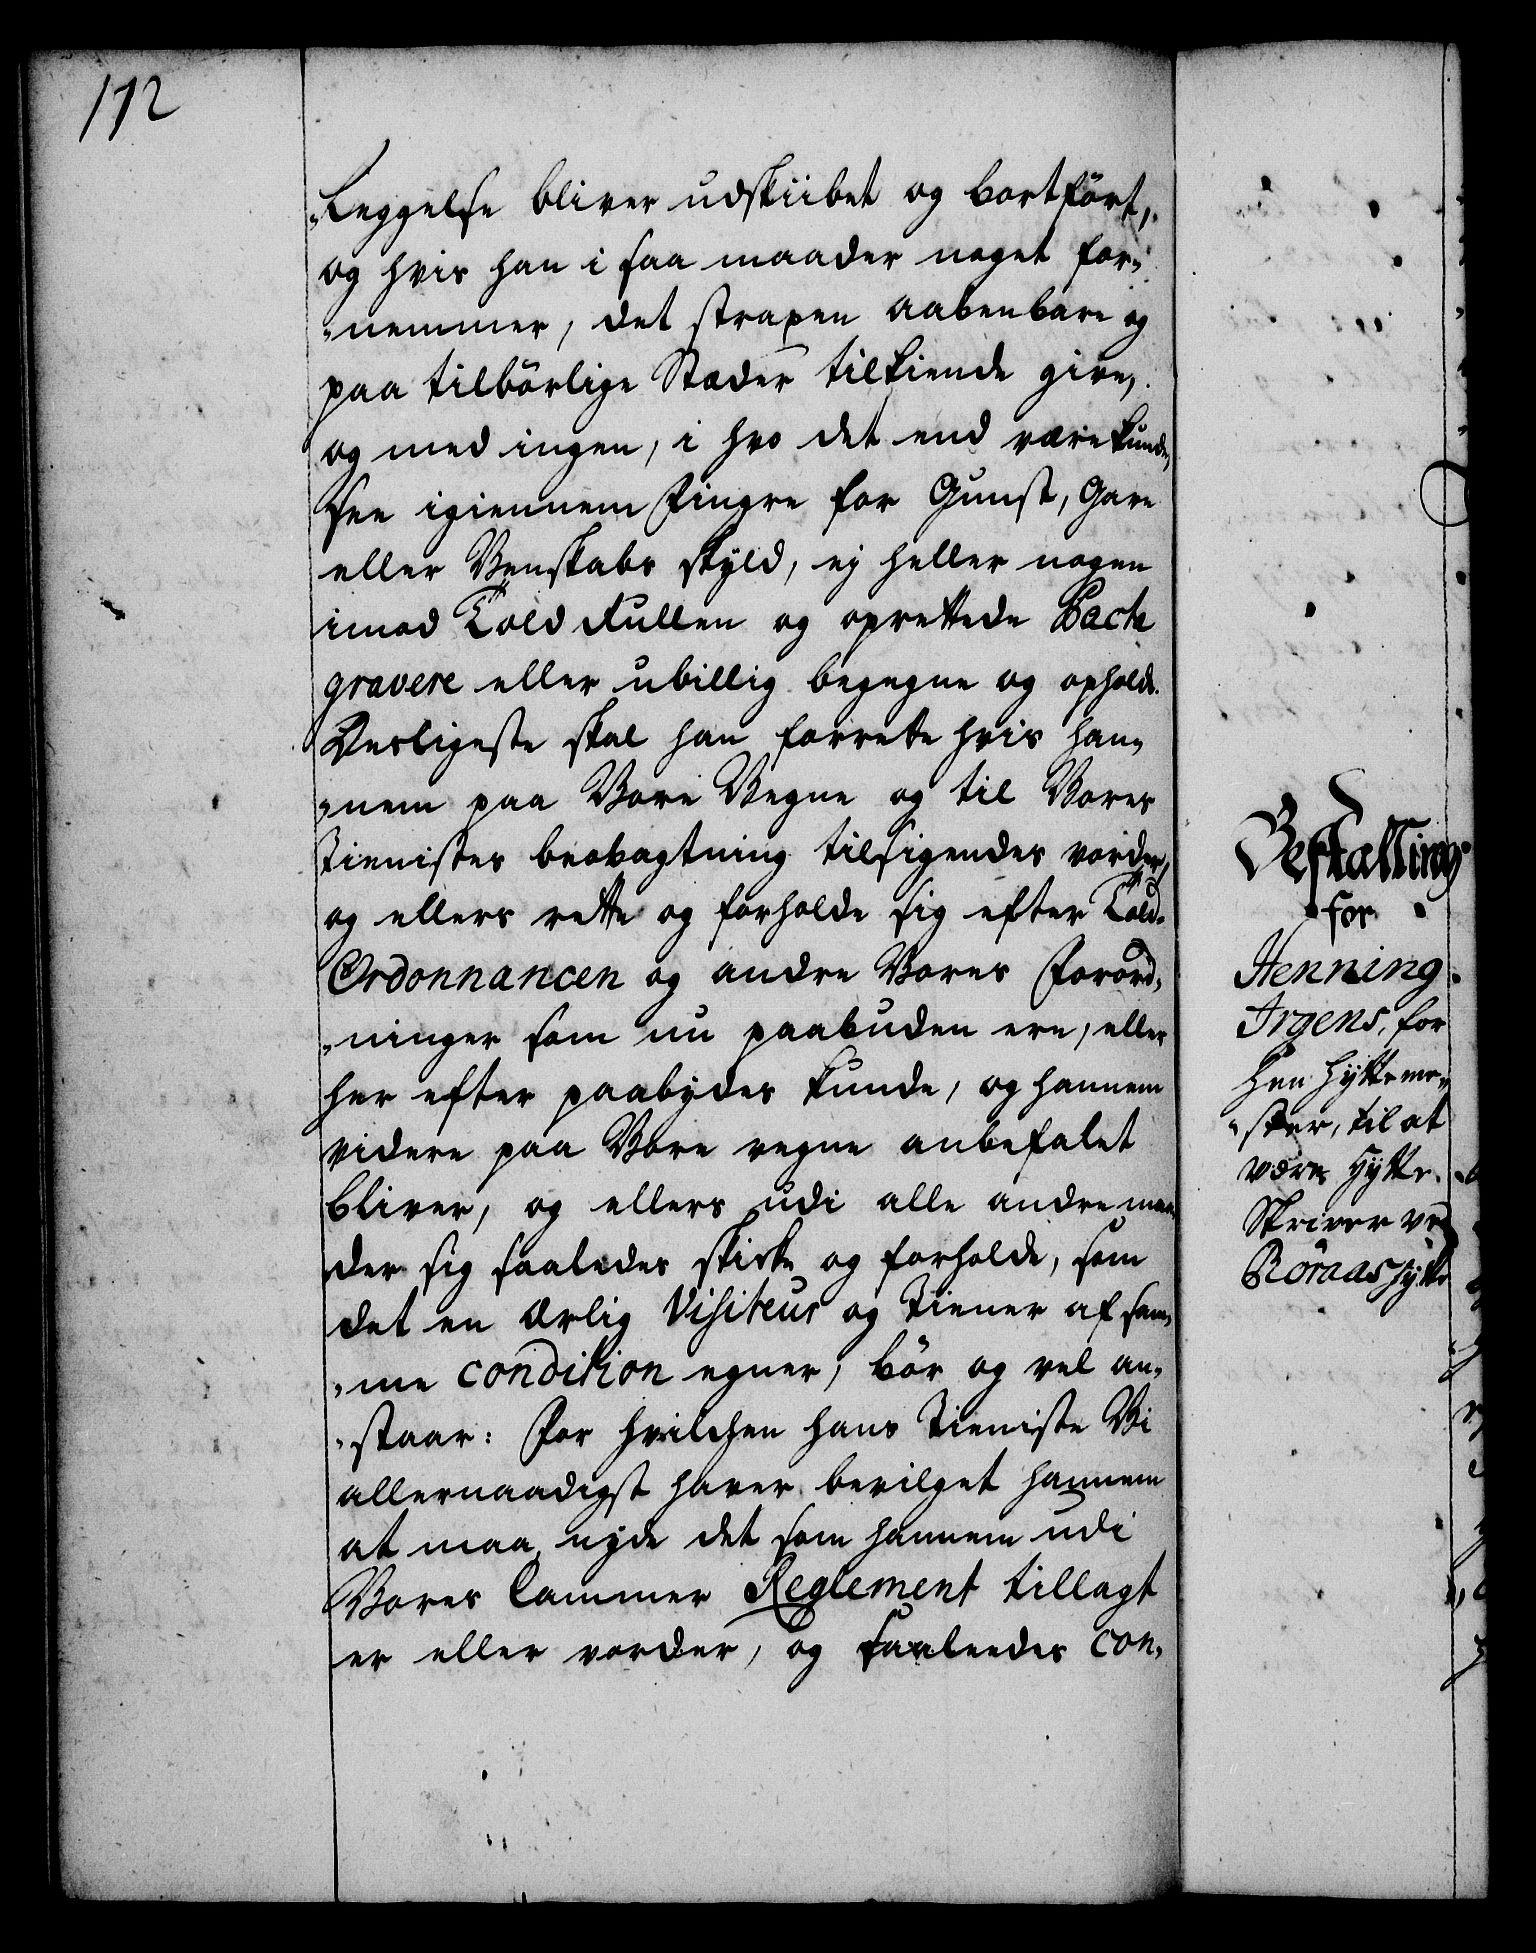 172
„Leggelse bliver udskiibet og bortført,
og hvis han i saa maader noget for„
„nemmer, det straxen aabenbare og
paa tilbörlige Stæder tilkiende give,
og med ingen, i hvo det end være kunde,
see igiennem Fingre for Gunst, Gave
eller Venskabs skyld, ej heller nogen
imod Told Rullen og oprettede Pacta
gravere eller ubillig begegne og opholde.
Desligeste skal han forrette hvis han„
„nem paa Vore Vegne og til Vores
Tienistes beobagtning tilsigendes vorder,
og ellers rette og forholde sig efter Told-
Ordonnancen og andre Vores Forord„
„ninger som nu paabuden ere, eller
her efter paabydes kunde, og hannem
videre paa Vore vegne anbefalet
bliver, og ellers udi alle andre maa
der sig saaledes skicke og forholde, som
det en ærlig Visiteur og Tiener af sam„
„me condition egner, bör og vel an„
„staar: For hvilchen hans Tieniste Vi
allernaadigst haver bevilget hannem
at maa nyde det som hannem udi
Vores Cammer Reglement tillagt
er eller vorder, og saaleedes con„
Bestalling
for
Henning
Irgens, for
hen Hytteme„
„ster, til at
være Hytte-
Skriver ved
Röraas Hytte